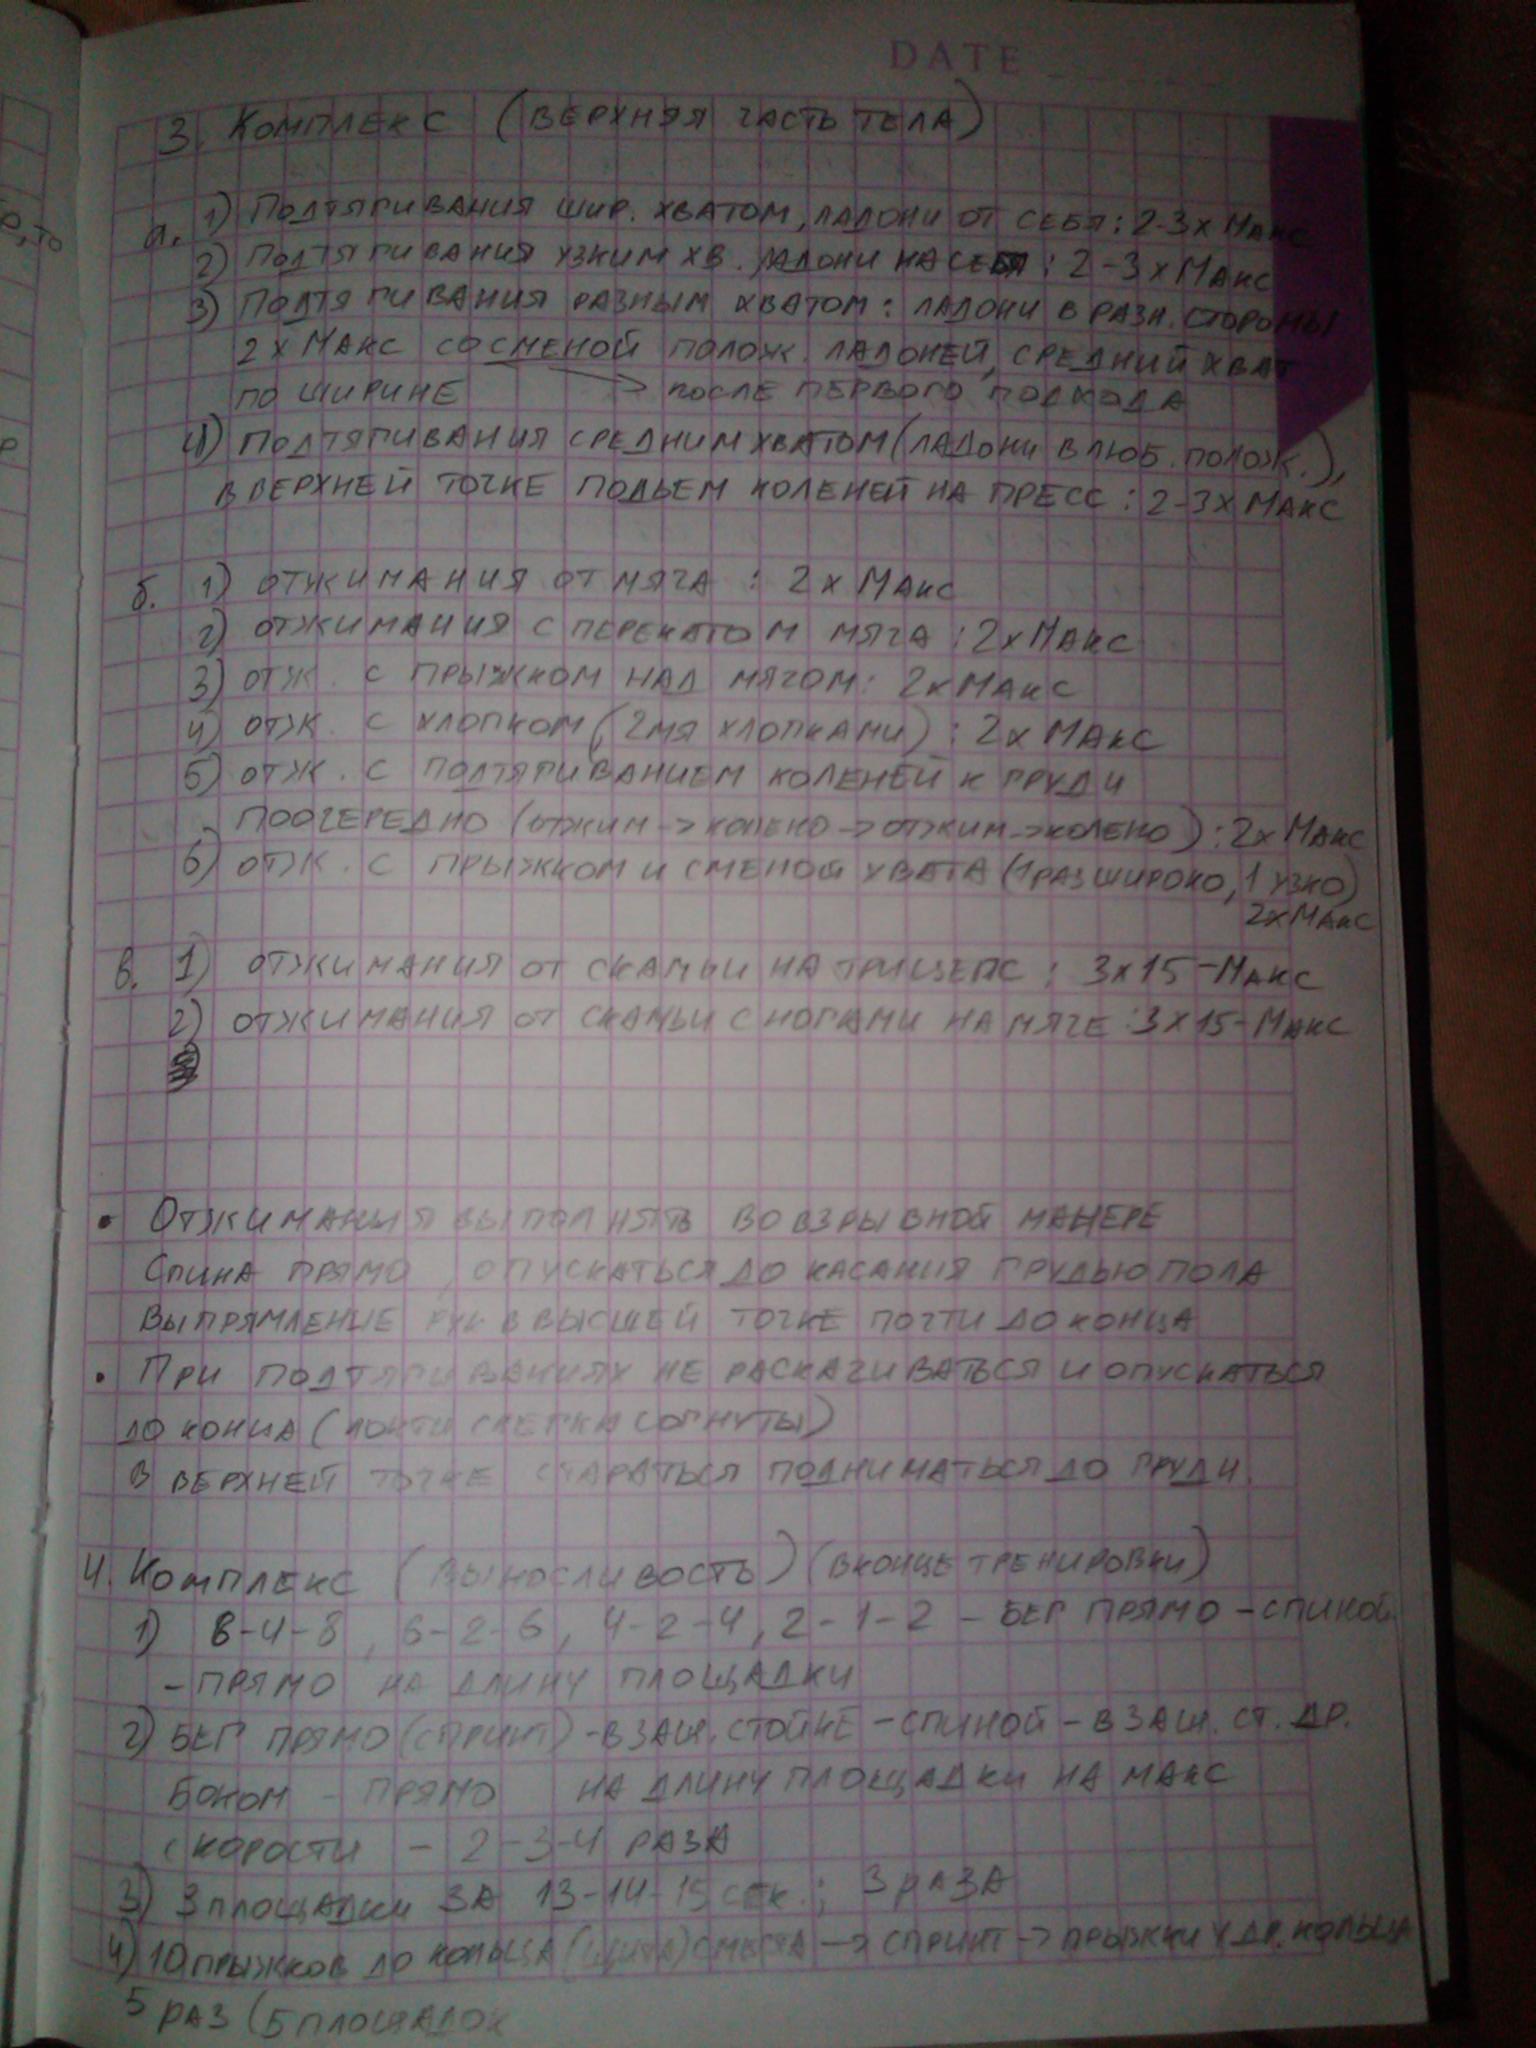 DATE
3. Комплекс (верхняя часть тела)
а. 1) Подтягивания шир. хватом, ладони от себя: 2-3х Макс
2) Подтягивания узким хв. ладони на себя: 2-3 х Макс
3) Подтягивания разным хватом: ладони в разн. стороны
2 х Макс со сменой полож. ладоней, средний хват
по ширине → после первого подхода
4) Подтягивания средним хватом (ладони в люб. полож.),
в верхней точке подьем коленей на пресс: 2-3х Макс
б. 1) отжимания от мяча: 2 х Макс
2) отжимания с перекатом мяча: 2х Макс
3) отж. с прыжком над мячом: 2х Макс
4) отж. с хлопком (2мя хлопками): 2х Макс
5) отж. с подтягиванием коленей к груди
поочередно (отжим -> колено -> отжим -> колено): 2х Макс
6) отж. с прыжком и сменой хвата (1 раз широко, 1 узко)
2х Макс
в. 1) отжимания от скамьи на трицепс: 3х15-Макс
2) отжимания от скамьи с ногами на мяче: 3х15-Макс
• Отжимания выполнять во взрывной манере
Спина прямо, опускаться до касания грудью пола
Выпрямление рук в высшей точке почти до конца
• При подтягиваниях не раскачиваться и опускаться
до конца (локти слегка согнуты)
В верхней точке стараться подниматься до груди.
4. Комплекс (выносливость) (в конце тренировки)
1) 8-4-8, 6-2-6, 4-2-4, 2-1-2 - бег прямо - спиной
- прямо на длину площадки
2) бег прямо (спринт) - в защ. стойке - спиной - в защ. ст. др.
боком - прямо на длину площадки на макс
скорости - 2-3-4 раза
3) 3 площадки за 13-14-15 сек.; 3 раза
4) 10 прыжков до кольца (щита) с места -> спринт -> прыжки у др. кольца
5 раз (5 площадок